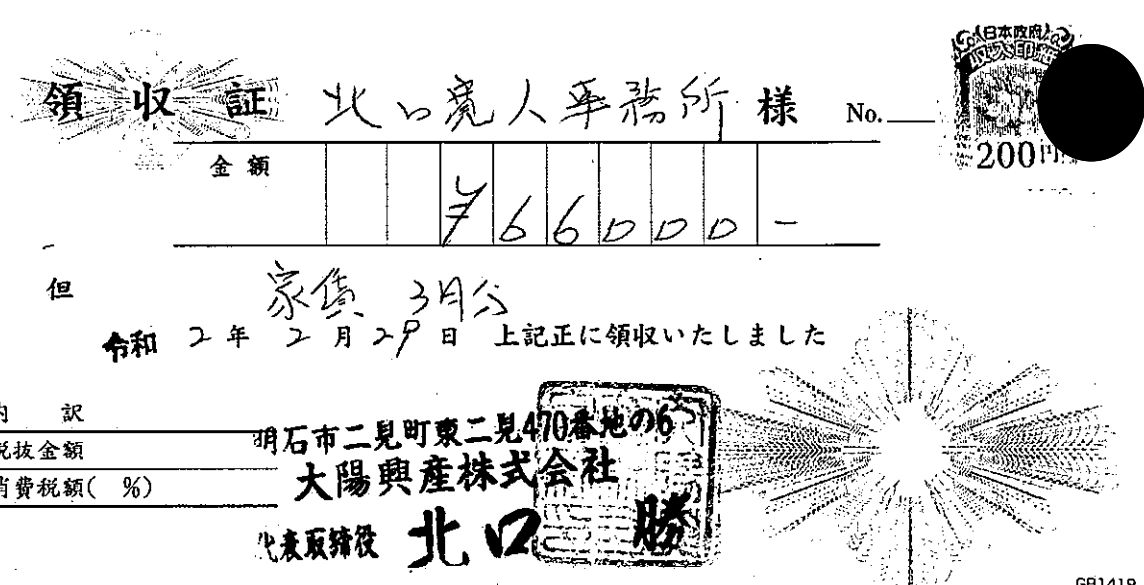 領収証 北口寛人事務所 様 No.
日本政府
収入印紙
200円
金額 ¥66000-
但 家賃 3月分
令和 2年 2月29日 上記正に領収いたしました
内訳
税抜金額
消費税額( %)
明石市二見町東二見470番地の6
大陽興産株式会社
代表取締役 北口 勝
GB1419